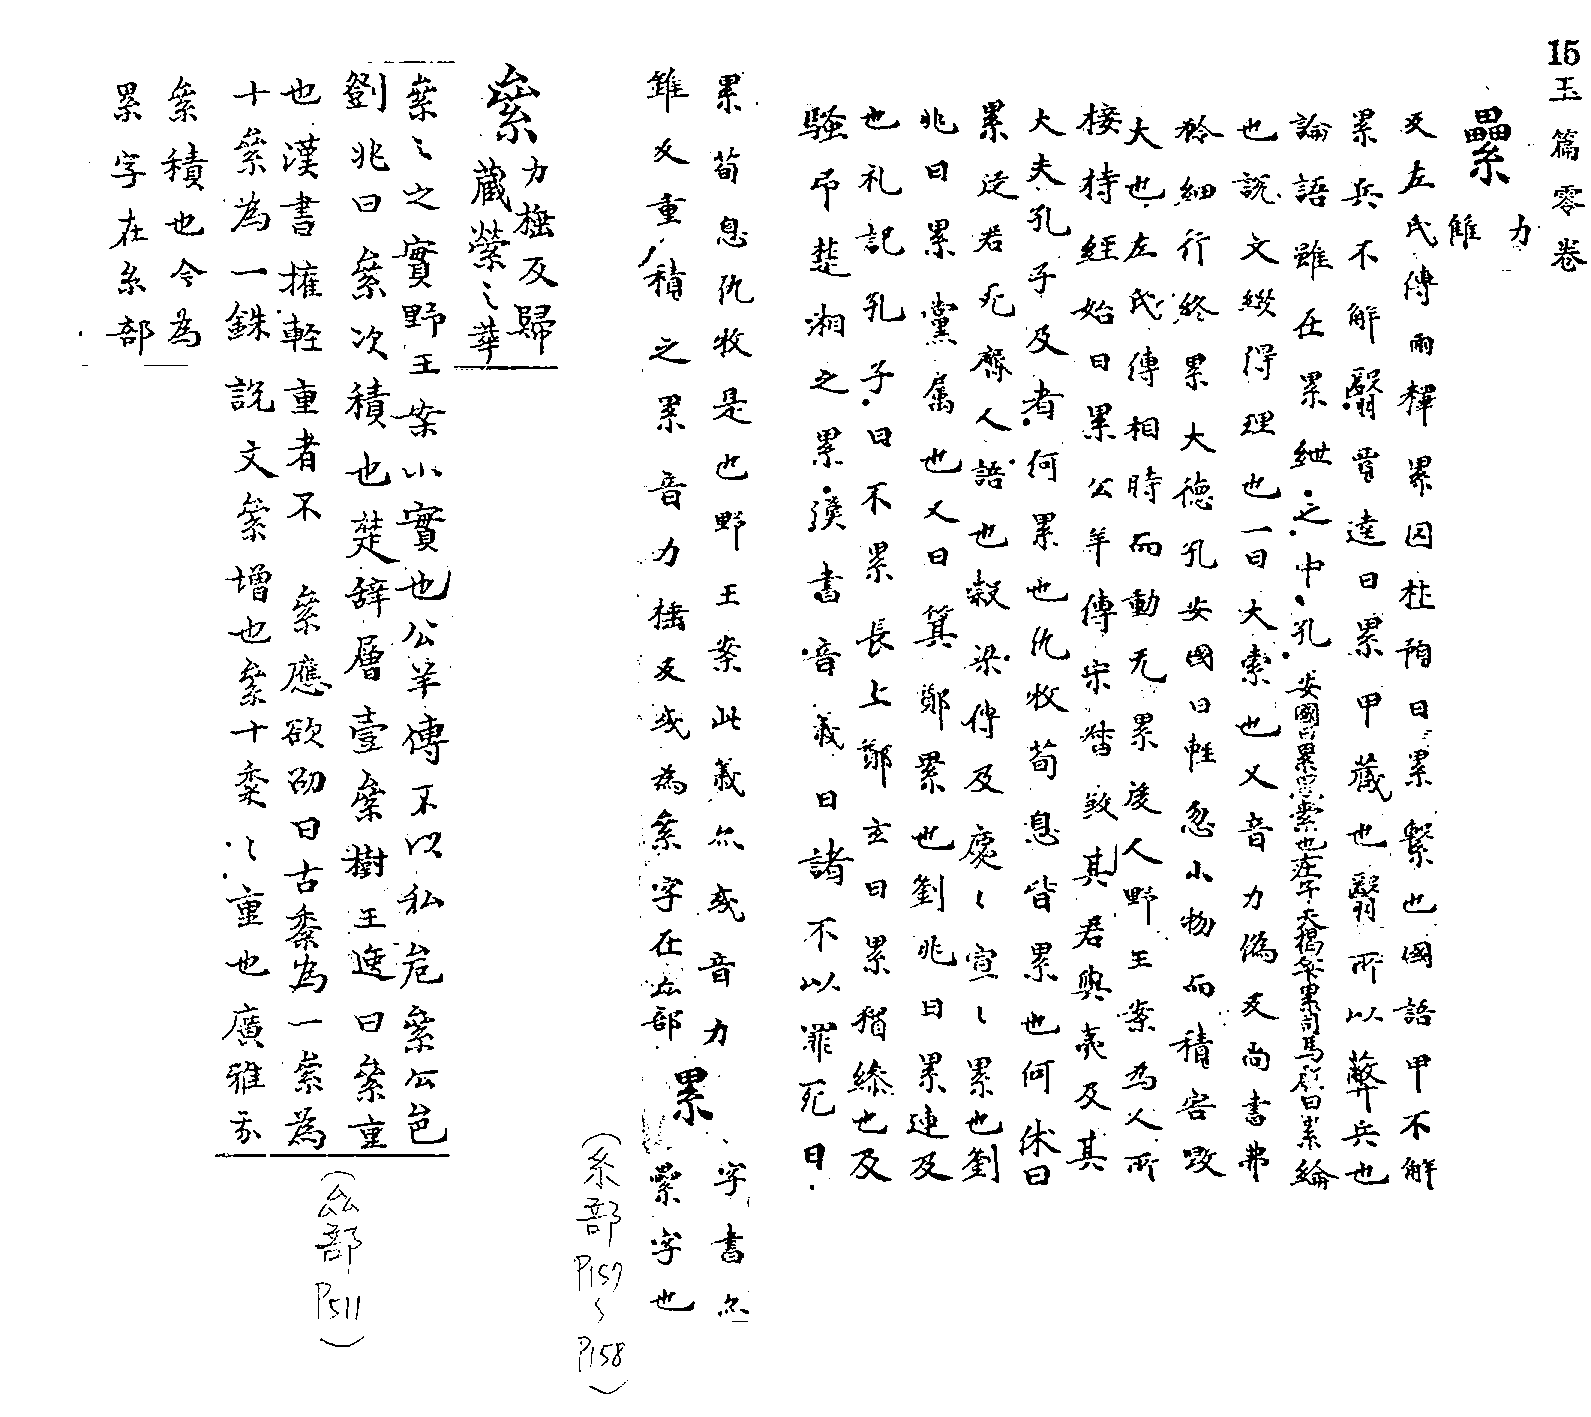 15
玉篇零卷
纍 力
雖
反左氏傳兩釋累囚杜預曰累繫也國語甲不解
累兵不解翳賈逵曰累甲藏也翳所以蔽兵也
論語雖在累紲之中孔安國曰累黑索也莊子天搗衆累司馬彪曰累綸
也說文綴得理也一曰大索也又音力僞反尚書弗
矜細行終累大德孔安國曰輕忽小物而積害毀
大也左氏傳相時而動无累後人野王案為人所
接持經始曰累公羊傳宋督弒其君與夷及其
大夫孔子及者何累也仇牧荀息皆累也何休曰
累從君死齊人語也穀梁傳及處〻宣〻累也劉
兆曰累黨属也又曰箕鄭累也劉兆曰累連及
也礼記孔子曰不累長上鄭玄曰累猶係也及
騷弔楚湘之累漢書音義曰諸不以罪死曰
累荀息仇牧是也野王案此義亦或音力
雖反重積之累音力捶反或為絫字在厽部
累 字書亦
纍字也
(糸部 P157〜P158)
絫 力捶反歸
藏縈〻華
絫〻之實野王案小實也公羊傳不以私危絫公邑
劉兆曰絫次積也楚辭層壹絫樹王逸曰絫重
也漢書擁輕重者不 絫應劭曰古黍為一絫為
十絫為一銖說文絫增也絫十黍〻重也廣雅亦
絫積也今為
累字在糸部
(厽部 P511)